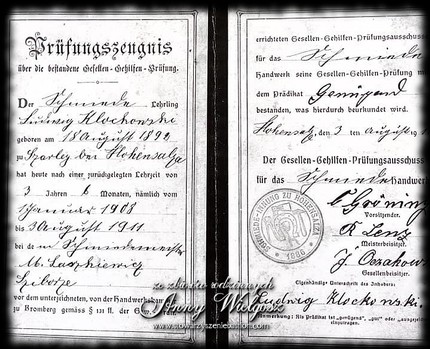 Prüfungszeugnis
über die bestandene Gesellen-Gehilfen-Prüfung.
Der Schmiede Lehrling
Ludwig Klockowski
geboren am 18 August 1892
zu Szarley bei Hohensalza
hat heute nach einer zurückgelegten Lehrzeit von
3 Jahren 6 Monaten, nämlich vom
1 Januar 1908
bis 3 August 1911
bei dem Schmiedemeister
M. Laszkiewicz
vor dem unterzeichneten, von der Handwerkskammer
zu Bromberg gemäss § 131 ff. der Gew.
errichteten Gesellen-Gehilfen-Prüfungsausschuss
für das Schmiede
Handwerk seine Gesellen-Gehilfen-Prüfung mit
dem Prädikat Genügend
bestanden, was hierdurch beurkundet wird.
Hohensalza, den 3 ten August 19
Der Gesellen-Gehilfen-Prüfungsausschuss
für das Schmiede Handwerk
Vorsitzender.
R Lenz
Meisterbeisitzer.
J.
Gesellenbeisitzer.
Eigenhändige Unterschrift des Inhabers:
Ludwig Klockowski.
SCHMIEDE-INNUNG ZU HOHENSALZA
1886
ze zbiorów rodzinnych
Anny Wielgosz
www.stowarzyszeniebastion.com